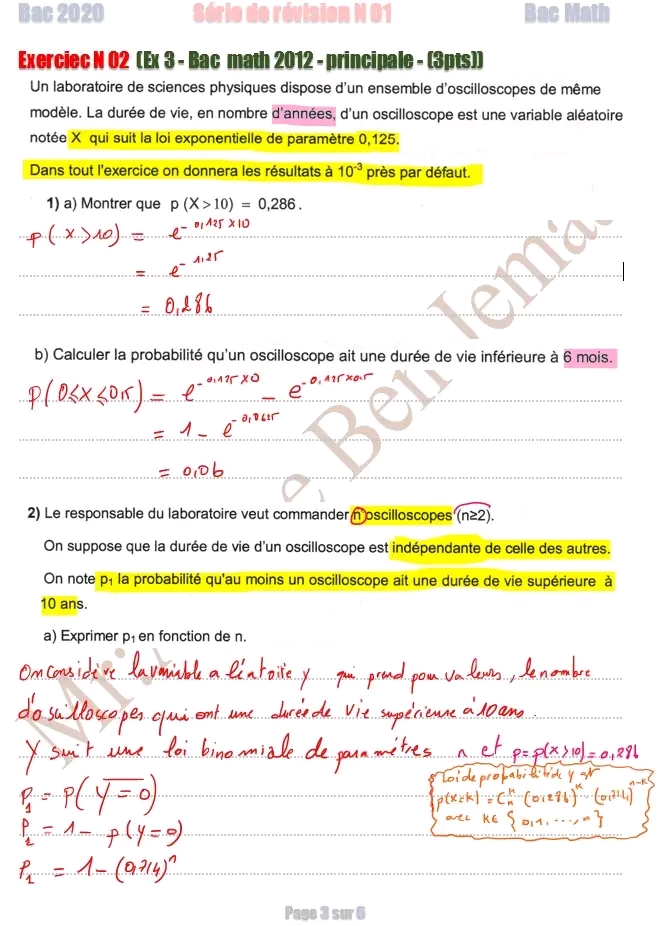 Bac 2020 Série de révision N 01 Bac Math
Exerciec N 02 (Ex 3 - Bac math 2012 - principale - (3pts))
Un laboratoire de sciences physiques dispose d'un ensemble d'oscilloscopes de même
modèle. La durée de vie, en nombre d'années, d'un oscilloscope est une variable aléatoire
notée X qui suit la loi exponentielle de paramètre 0,125.
Dans tout l'exercice on donnera les résultats à 10⁻³ près par défaut.
1) a) Montrer que p (X > 10) = 0,286 .
p(x>10) = e^{-0,125×10}
= e^{-1,25}
= 0,286
b) Calculer la probabilité qu'un oscilloscope ait une durée de vie inférieure à 6 mois.
P(0≤X≤0,5) = e^{-0,125×0} - e^{-0,125×0,5}
= 1 - e^{-0,0625}
= 0,06
2) Le responsable du laboratoire veut commander n oscilloscopes (n≥2).
On suppose que la durée de vie d'un oscilloscope est indépendante de celle des autres.
On note p₁ la probabilité qu'au moins un oscilloscope ait une durée de vie supérieure à
10 ans.
a) Exprimer p₁ en fonction de n.
On considère la variable aléatoire y qui prend pour valeurs, le nombre
d'oscilloscopes qui ont une durée de vie supérieure à 10 ans.
Y suit une loi binomiale de paramètres n et p=p(x>10)=0,286
Loi de probabilité de y est
P₁ = P(\overline{Y=0})
p(x=k) = C_n^k (0,286)^k (0,714)^{n-k}
avec k∈{0,1,...,n}
P₁ = 1 - p(y=0)
P₁ = 1 - (0,714)^n
Page 3 sur 6